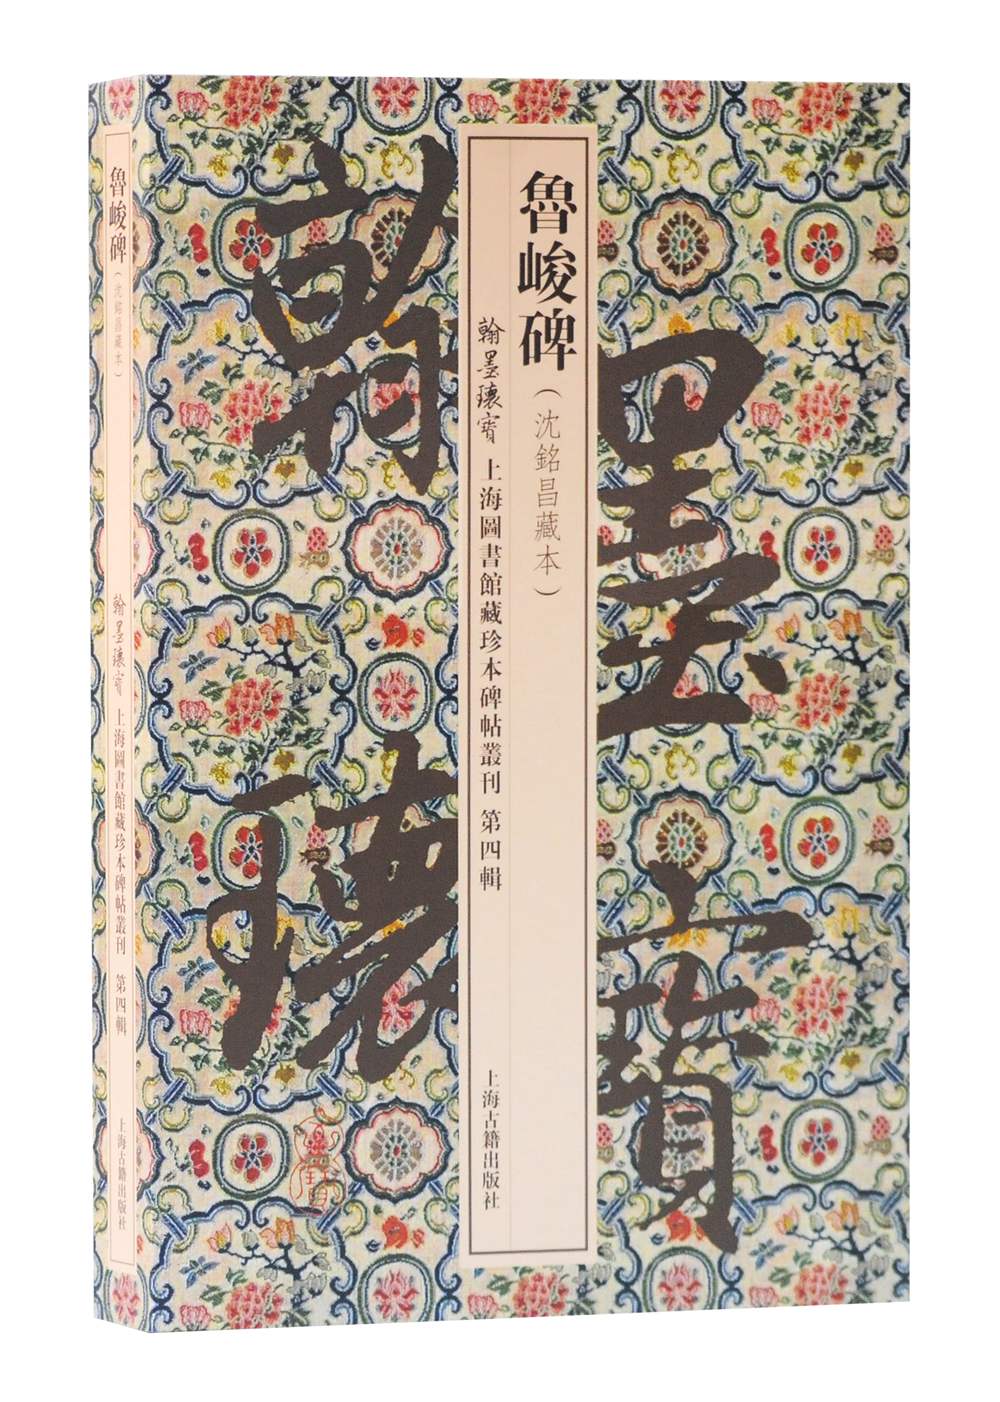 魯峻碑
（沈銘昌藏本）
翰墨瓌寶
上海圖書館藏珍本碑帖叢刊 第四輯
上海古籍出版社
翰墨
瓌寶
魯峻碑
（沈銘昌藏本）
翰墨瓌寶
上海圖書館藏珍本碑帖叢刊 第四輯
上海古籍出版社